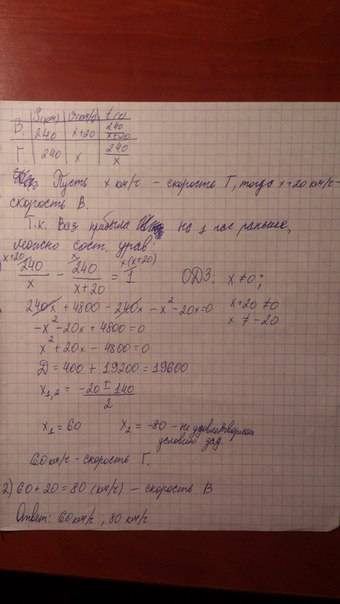 S(км) V(км/ч) t(ч)
В. 240 x+20 240/x+20
Г. 240 x 240/x
Пусть x км/ч - скорость Г, тогда x+20 км/ч -
скорость В.
Т.к. Ваз прибыла на 1 час раньше,
можно сост. урав.
x+20 x x(x+20)
240/x - 240/x+20 = 1 ОДЗ: x≠0;
240x + 4800 - 240x - x² - 20x=0 x+20≠0
-x² -20x + 4800 = 0 x≠-20
x² + 20x - 4800 = 0
D = 400 + 19200 = 19600
x1,2 = -20 ± 140/2
x1 = 60 x2 = -80 - не удовлетворяет
условию зад.
60 км/ч - скорость Г.
2) 60 + 20 = 80 (км/ч) - скорость В
Ответ: 60 км/ч, 80 км/ч